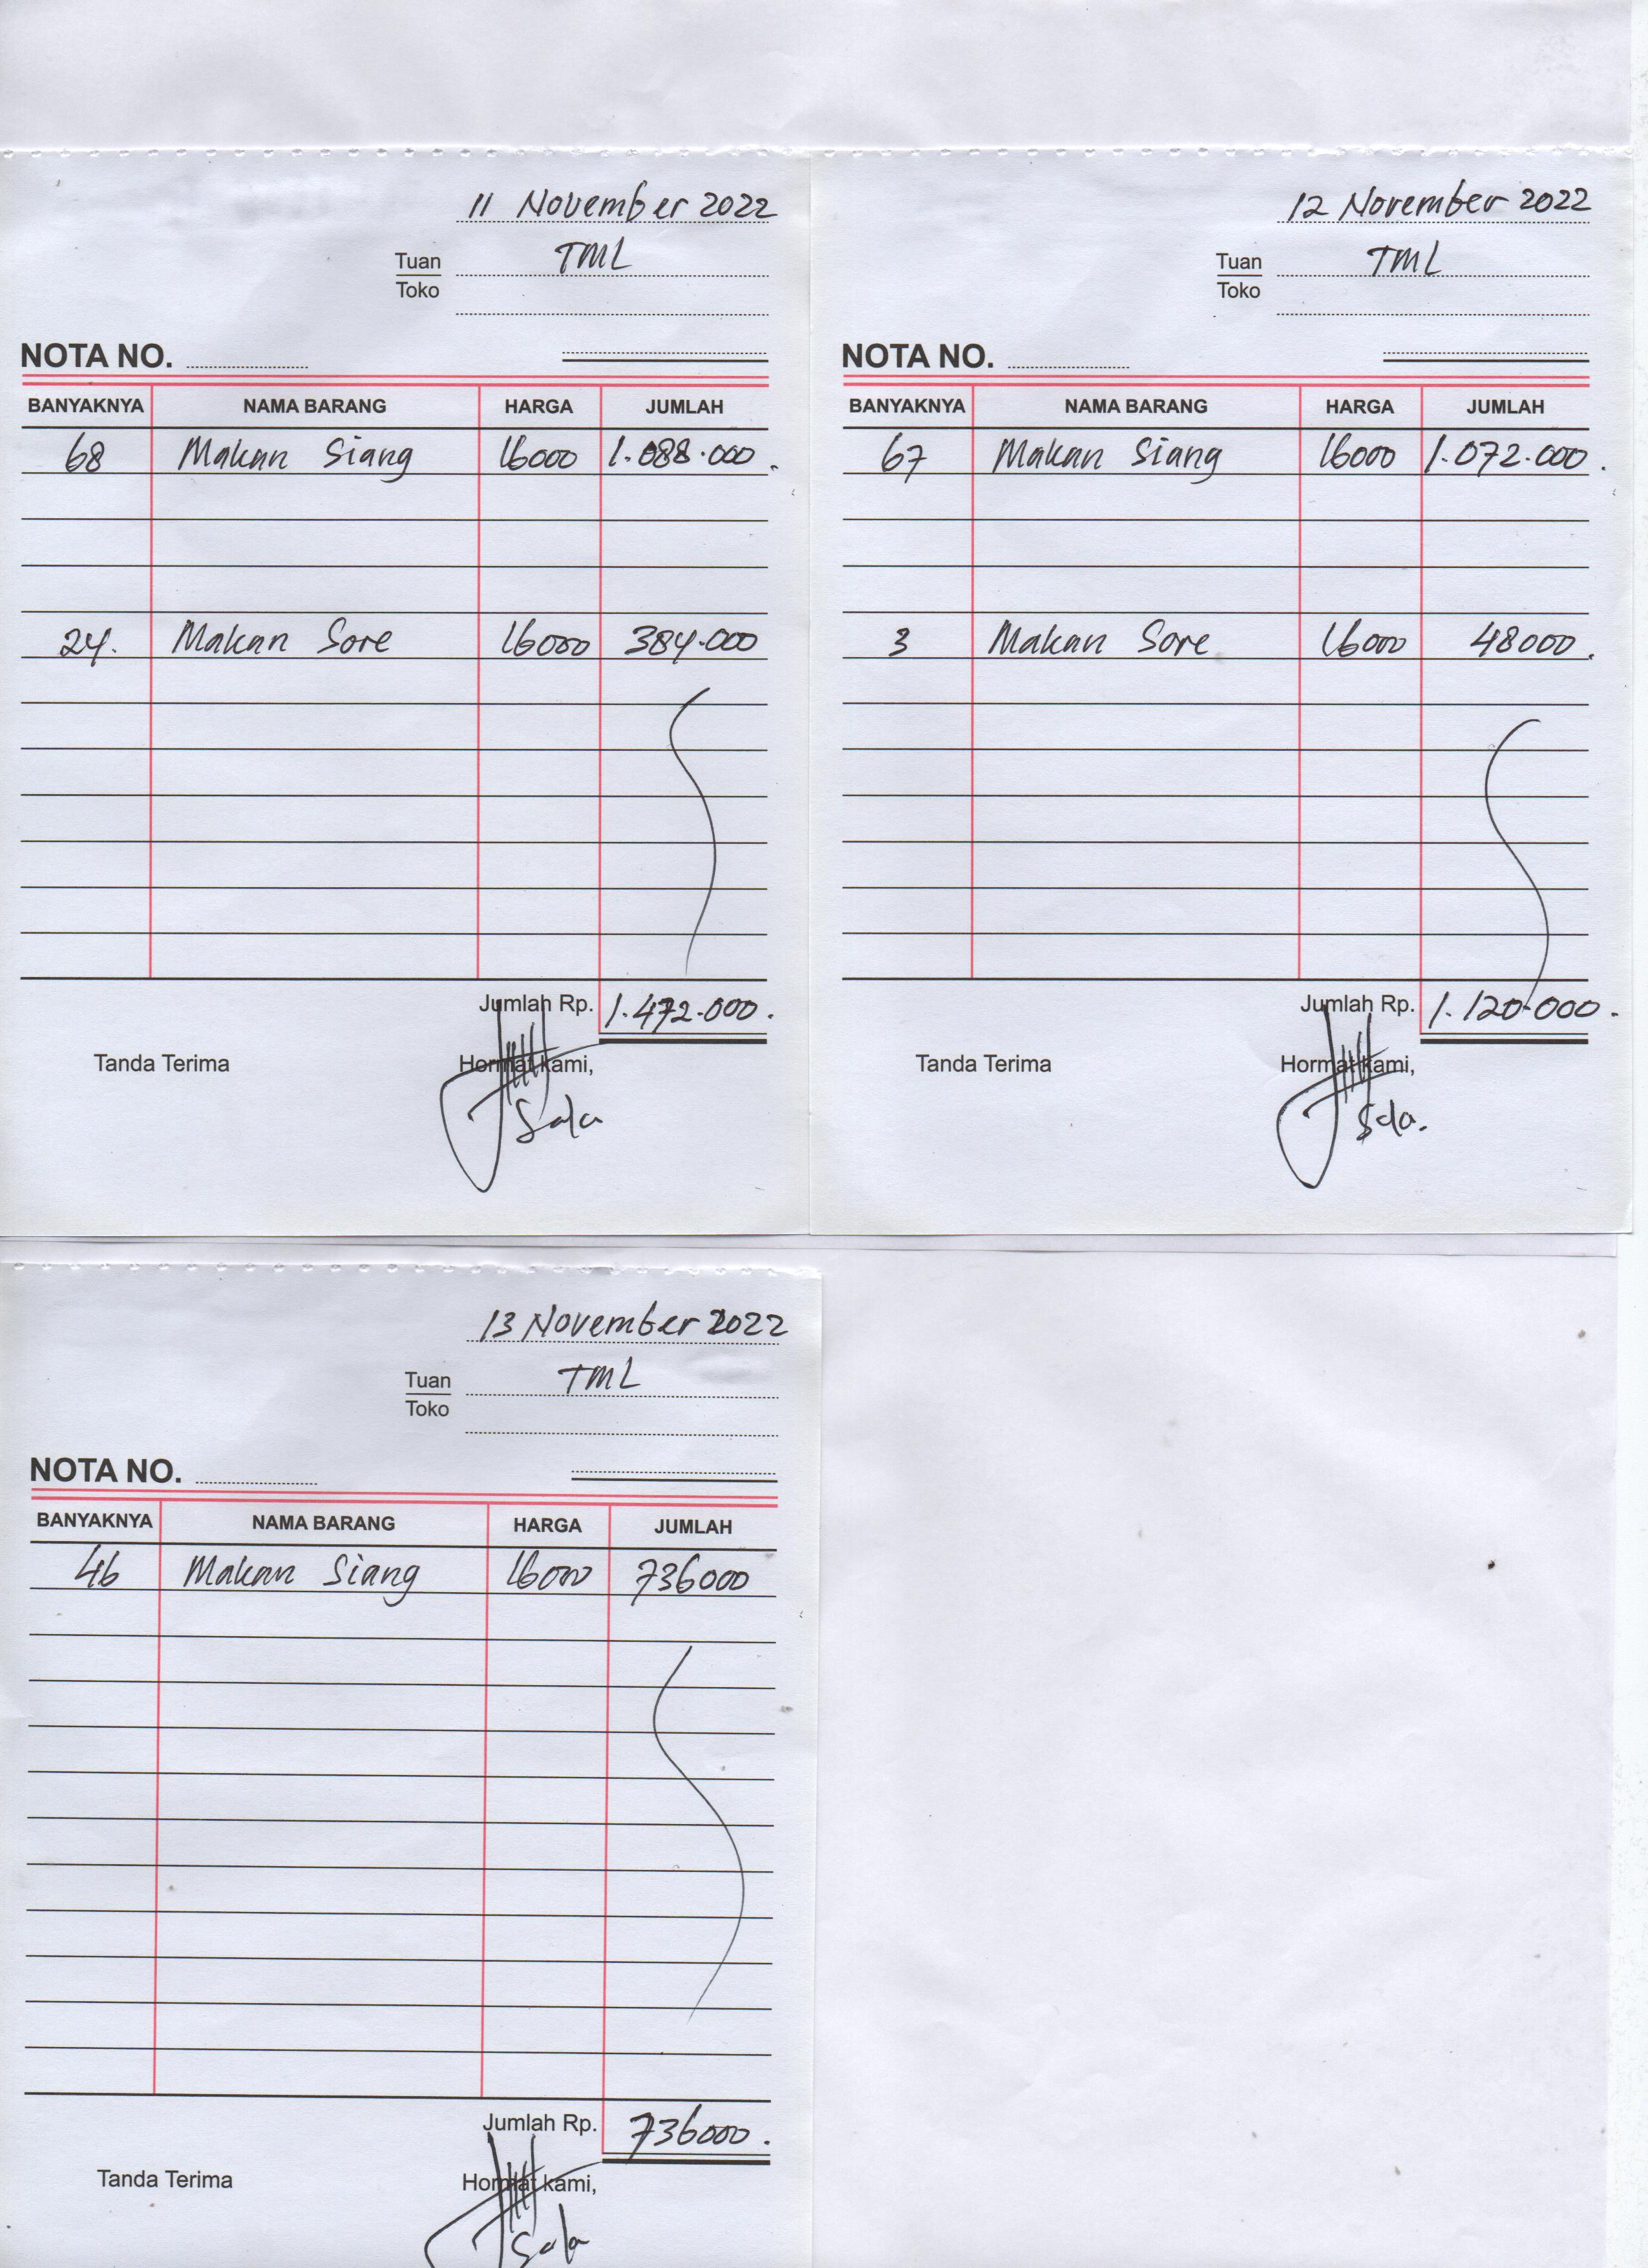 11 November 2022
Tuan TML
Toko
NOTA NO.
BANYAKNYA NAMA BARANG HARGA JUMLAH
68 Makan Siang 16000 1.088.000.
24. Makan Sore 16000 384.000
Jumlah Rp. 1.472.000.
Tanda Terima Hormat kami,
12 November 2022
Tuan TML
Toko
NOTA NO.
BANYAKNYA NAMA BARANG HARGA JUMLAH
67 Makan Siang 16000 1.072.000.
3 Makan Sore 16000 48000.
Jumlah Rp. 1.120.000.
Tanda Terima Hormat kami,
13 November 2022
Tuan TML
Toko
NOTA NO.
BANYAKNYA NAMA BARANG HARGA JUMLAH
46 Makan Siang 16000 736000
Jumlah Rp. 736000.
Tanda Terima Hormat kami,